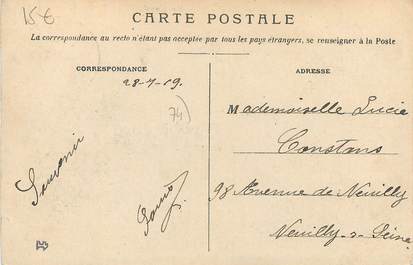 15€
CARTE POSTALE
La correspondance au recto n'étant pas acceptée par tous les pays étrangers, se renseigner à la Poste
CORRESPONDANCE
28-7-09.
74)
Souvenir
ADRESSE
Mademoiselle Lucie
Constans
98 Avenue de Neuilly
Neuilly-s-Seine